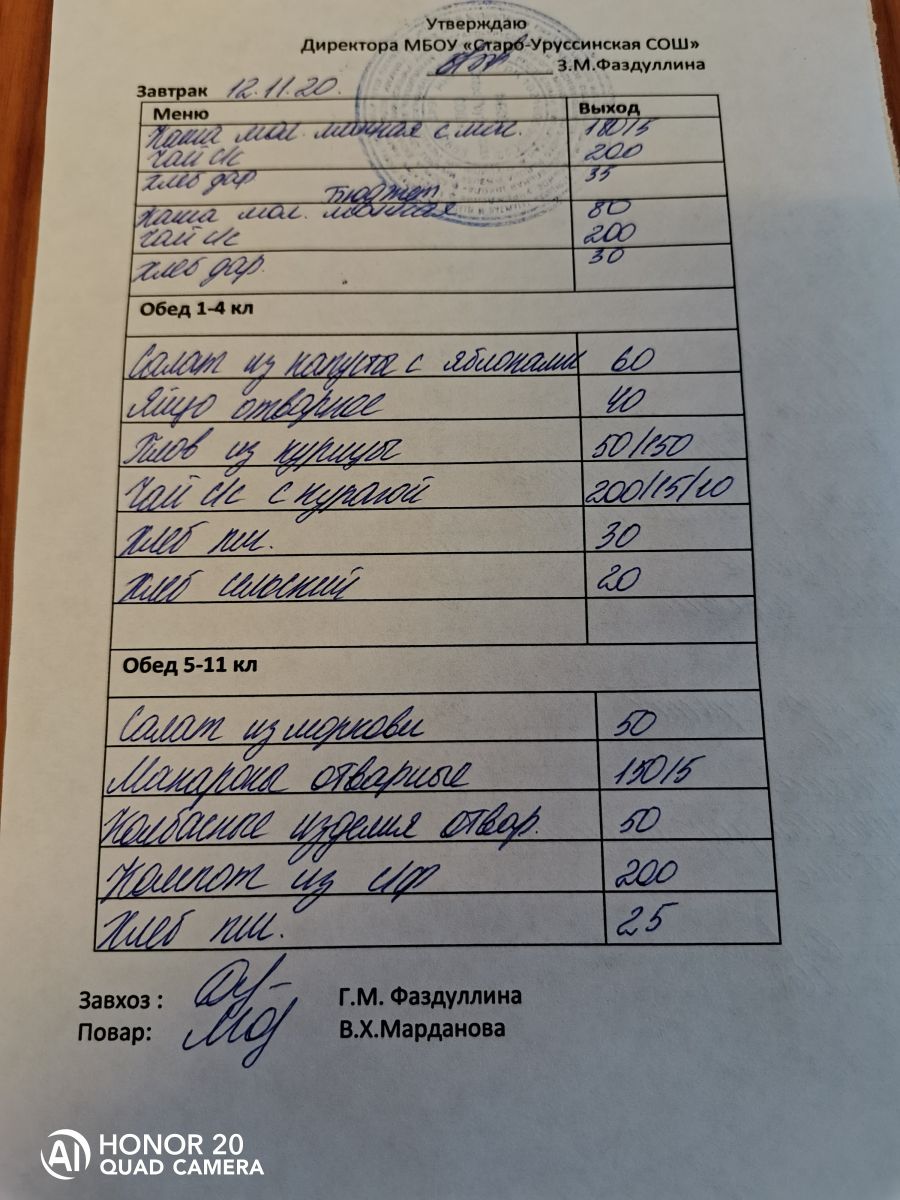 Утверждаю
Директора МБОУ «Старо-Уруссинская СОШ»
З.М.Фаздуллина
Завтрак 12.11.20.
Меню Выход
Каша мол. манная с мас. 180/5
Чай с/с 200
Хлеб дар 35
Бюджет
Каша мол. манная 80
Чай с/с 200
Хлеб дар. 30
Обед 1-4 кл
Салат из капуста с яблоками 60
Яйцо отварное 40
Плов из курицы 50/150
Чай с/с с курагой 200/15/10
Хлеб пш. 30
Хлеб сельский 20
Обед 5-11 кл
Салат из моркови 50
Макароны отварные 150/5
Колбасные изделия отвар. 50
Компот из с/ф 200
Хлеб пш. 25
Завхоз : Г.М. Фаздуллина
Повар: В.Х.Марданова
HONOR 20
QUAD CAMERA